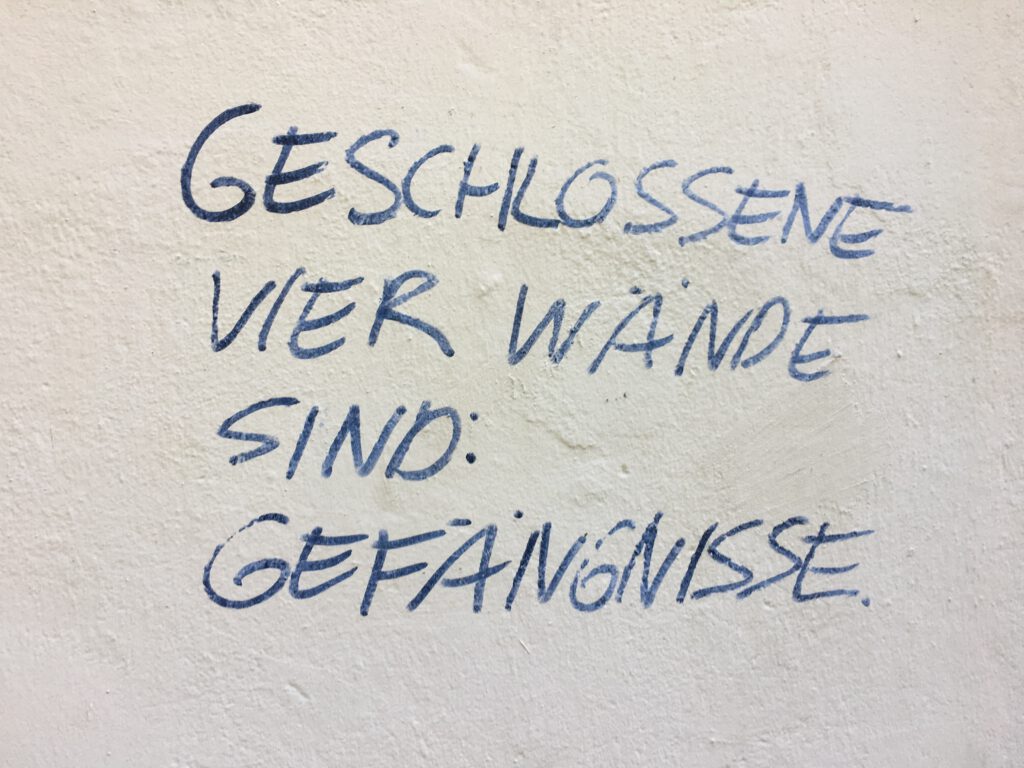 GESCHLOSSENE
VIER WÄNDE
SIND:
GEFÄNGNISSE.